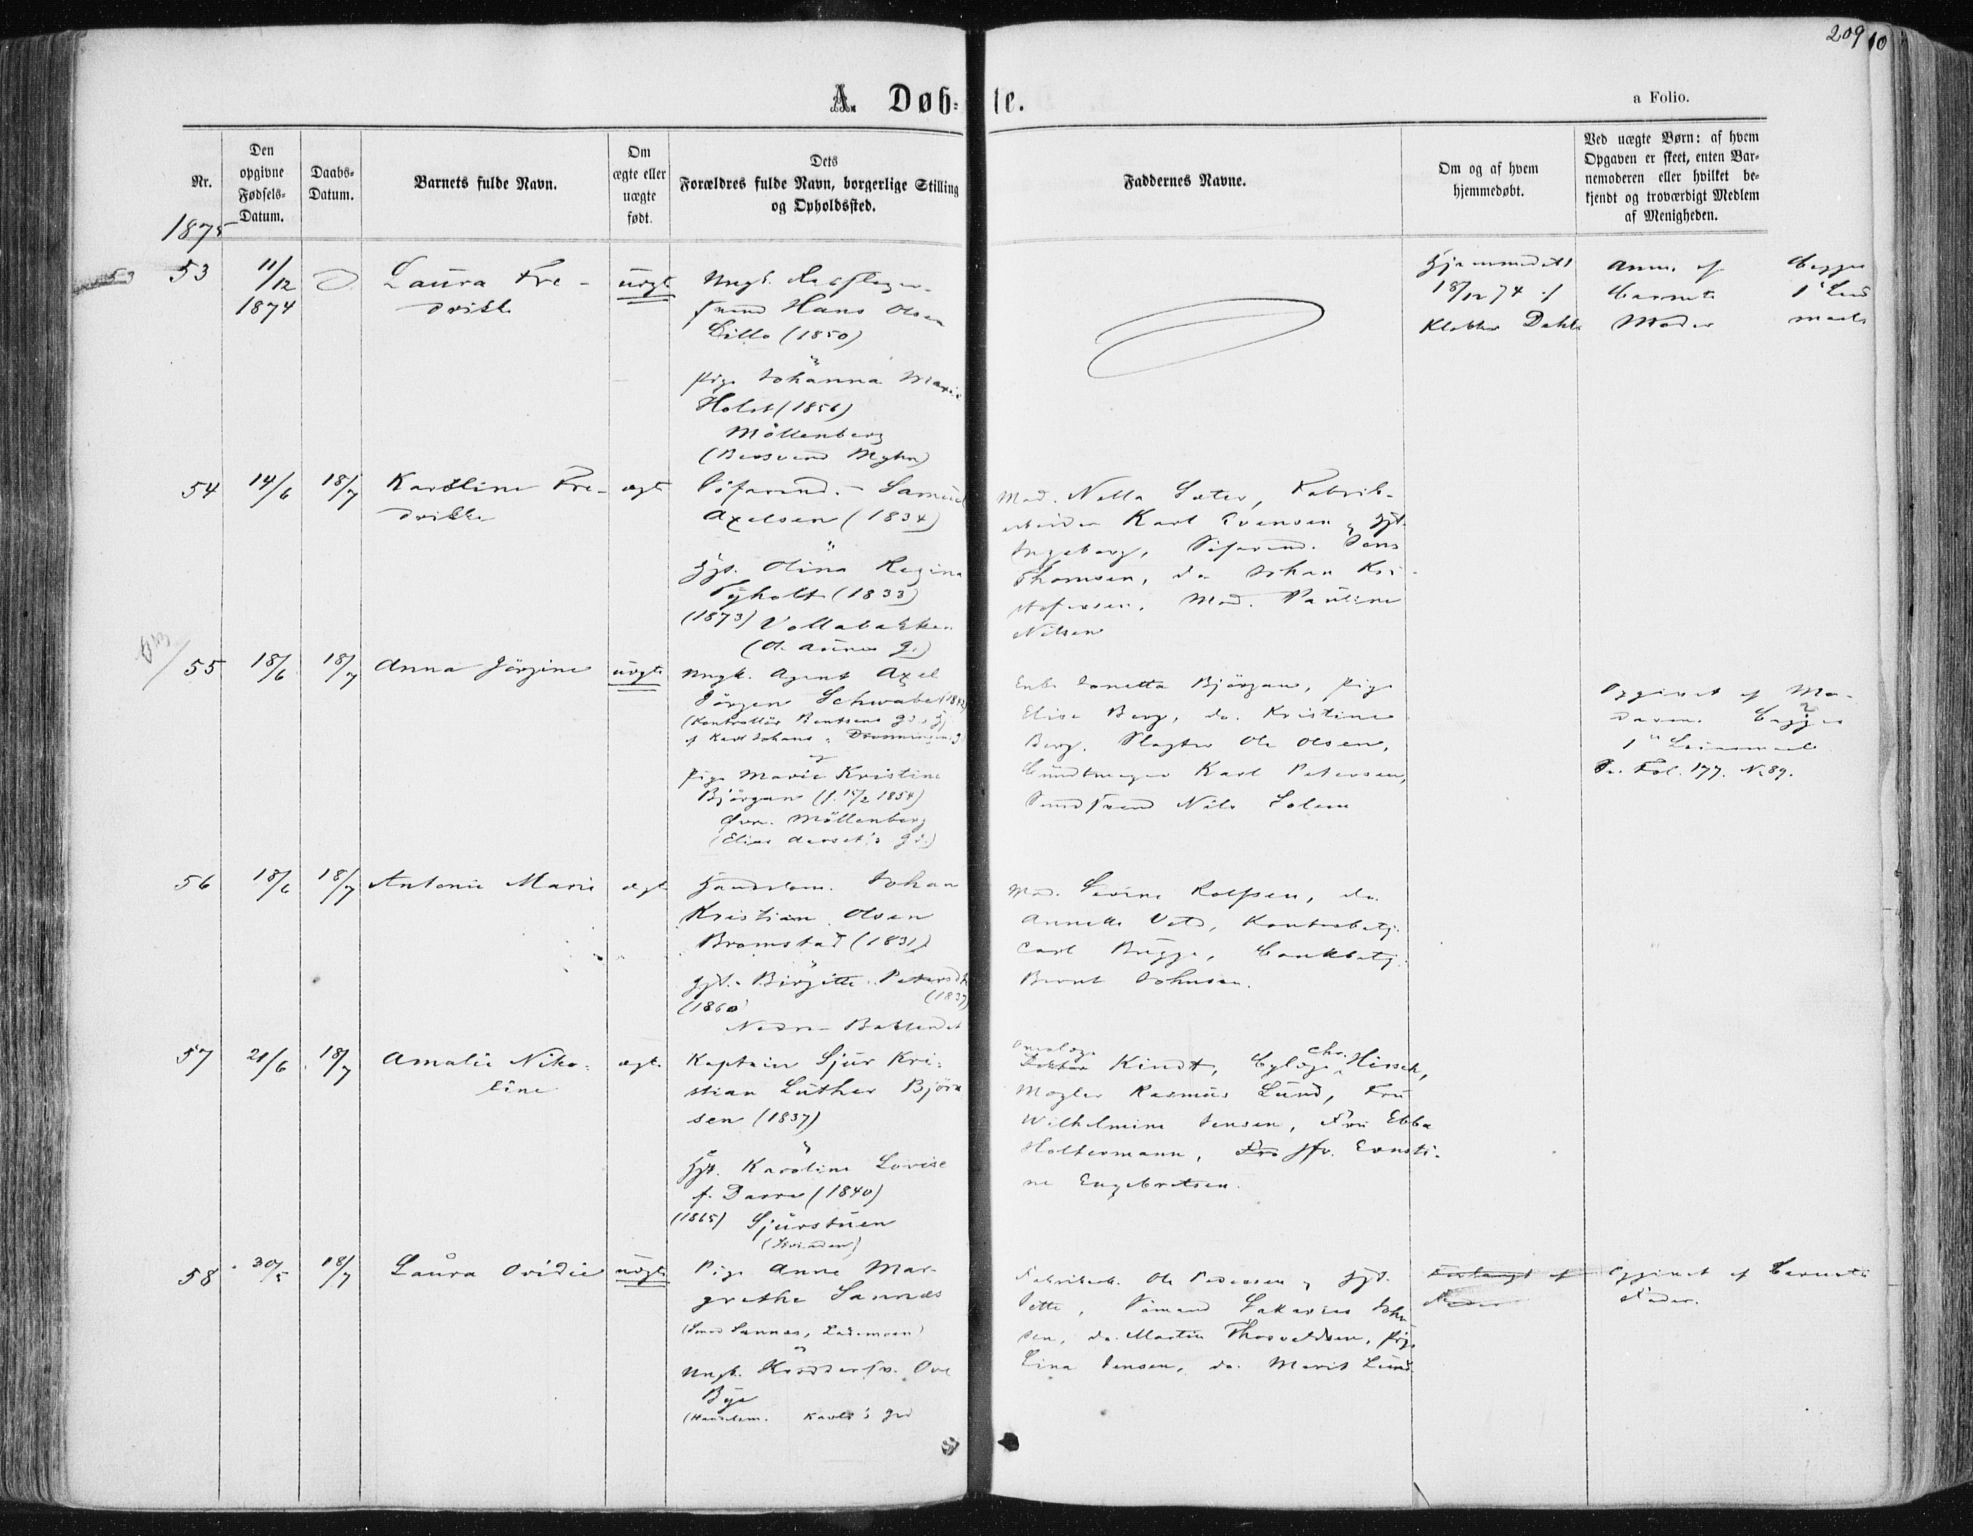 209
10
A. Døb-
te.
a Folio.
Nr.
Den
opgivne
Fødsels-
Datum.
Daabs-
Datum.
Barnets fulde Navn.
Om
ægte eller
uægte
født.
Dets
Forældres fulde Navn, borgerlige Stilling
og Opholdssted.
Faddernes Navne.
Om og af hvem
hjemmedøbt.
Ved uægte Børn: af hvem
Opgaven er skeet, enten Bar-
nemoderen eller hvilket be-
kjendt og troværdigt Medlem
af Menigheden.
1875
53
53
11/12
1874
Laura Fre-
drikke
uægt.
Ungk.
svend Hans Olsen
Lillo (1850)
Pige Johanna Marie
Holst (1856)
Möllenberg
(Bersvend Myhre)
Hjemmedøbt
18/12 74 af
Klokker Dahl
Anm. af
Barnets
Moder
Begges
1ste Leier
maal
54
14/6
18/7
Karoline Fre-
drikke
ægt.
Söfarend. Samuel
Axelsen (1834)
Hst. Olina Regina
Tyholt (1833)
(1873) Vollabakken
(O. Aunes G.)
Mad. Nella Sæter, Fabrik-
arbeider Karl Svensen og Hst.
Ingeborg, Söfarend. Jens
Thomsen, do Johan Kri-
stofersen, Mad. Pauline
Nilsen
55
18/6
18/7
Anna Jörgine
uægte
Ungk. Agent Axel
Jörgen Schwabe
(Kontrollör Bentsens Gd., Hj.
af Karl Johans og Dronningens G)
og
Pige Marie Kristine
Björgan (f. 15/2 1854)
Övre. Möllenberg
(Elias Aarset's Gd.)
Enke Jonetta Björgan, Pige
Elise Berg, do. Kristine
Berg, Slagter Ole Olsen,
Buntmager Karl Petersen,
Svend Nils Solem
Opgivet af Mo-
deren. Begges
1ste Leiermaal
Se Fol. 177. N. 89.
56
18/6
18/7
Antonie Marie
ægt.
Handelsm. Johan
Kristian Olsen
Bromstad (1831)
Hst. Birgitte Petersdtr
(1837)
(1860)
Nedre Baklandet
Mad. Sevine Rolfsen, do.
Annette Vets, Kontorbetj.
Carl Bugge, Bankbetj.
Bernt Johnsen.
57
21/6
18/7
Amalie Niko-
line
ægt.
Kaptein Sjur Kri-
stian Luther Björn
sen (1837)
Hst. Karoline Lovise
f. Darre (1840)
(1865) Sjurstuen
(Strinden)
Overlæge
Doktor Kindt, Bylæge Chr. Hirsch,
Mægler Rasmus Lund, Fru
Wilhelmine Jensen, Fru Ebba
Holtermann, Fro Jfr. Ernsti-
ne Engebretsen.
58
30/5
18/7
Laura Ovidie
uægte
Pige Anne Mar-
grethe Sannæs
(Smed Sannæs, Lademoen)
Ungk. Ove
Bye
(Handelsm. Gd
Fabrikarb. Ole Pedersen og Hst.
Jette, Sömand Sakarias John
sen, do. Martin Thorvaldsen, Pige
Lina Jensen, do. Marit Lund
Opgivet af Barnets
Fader.